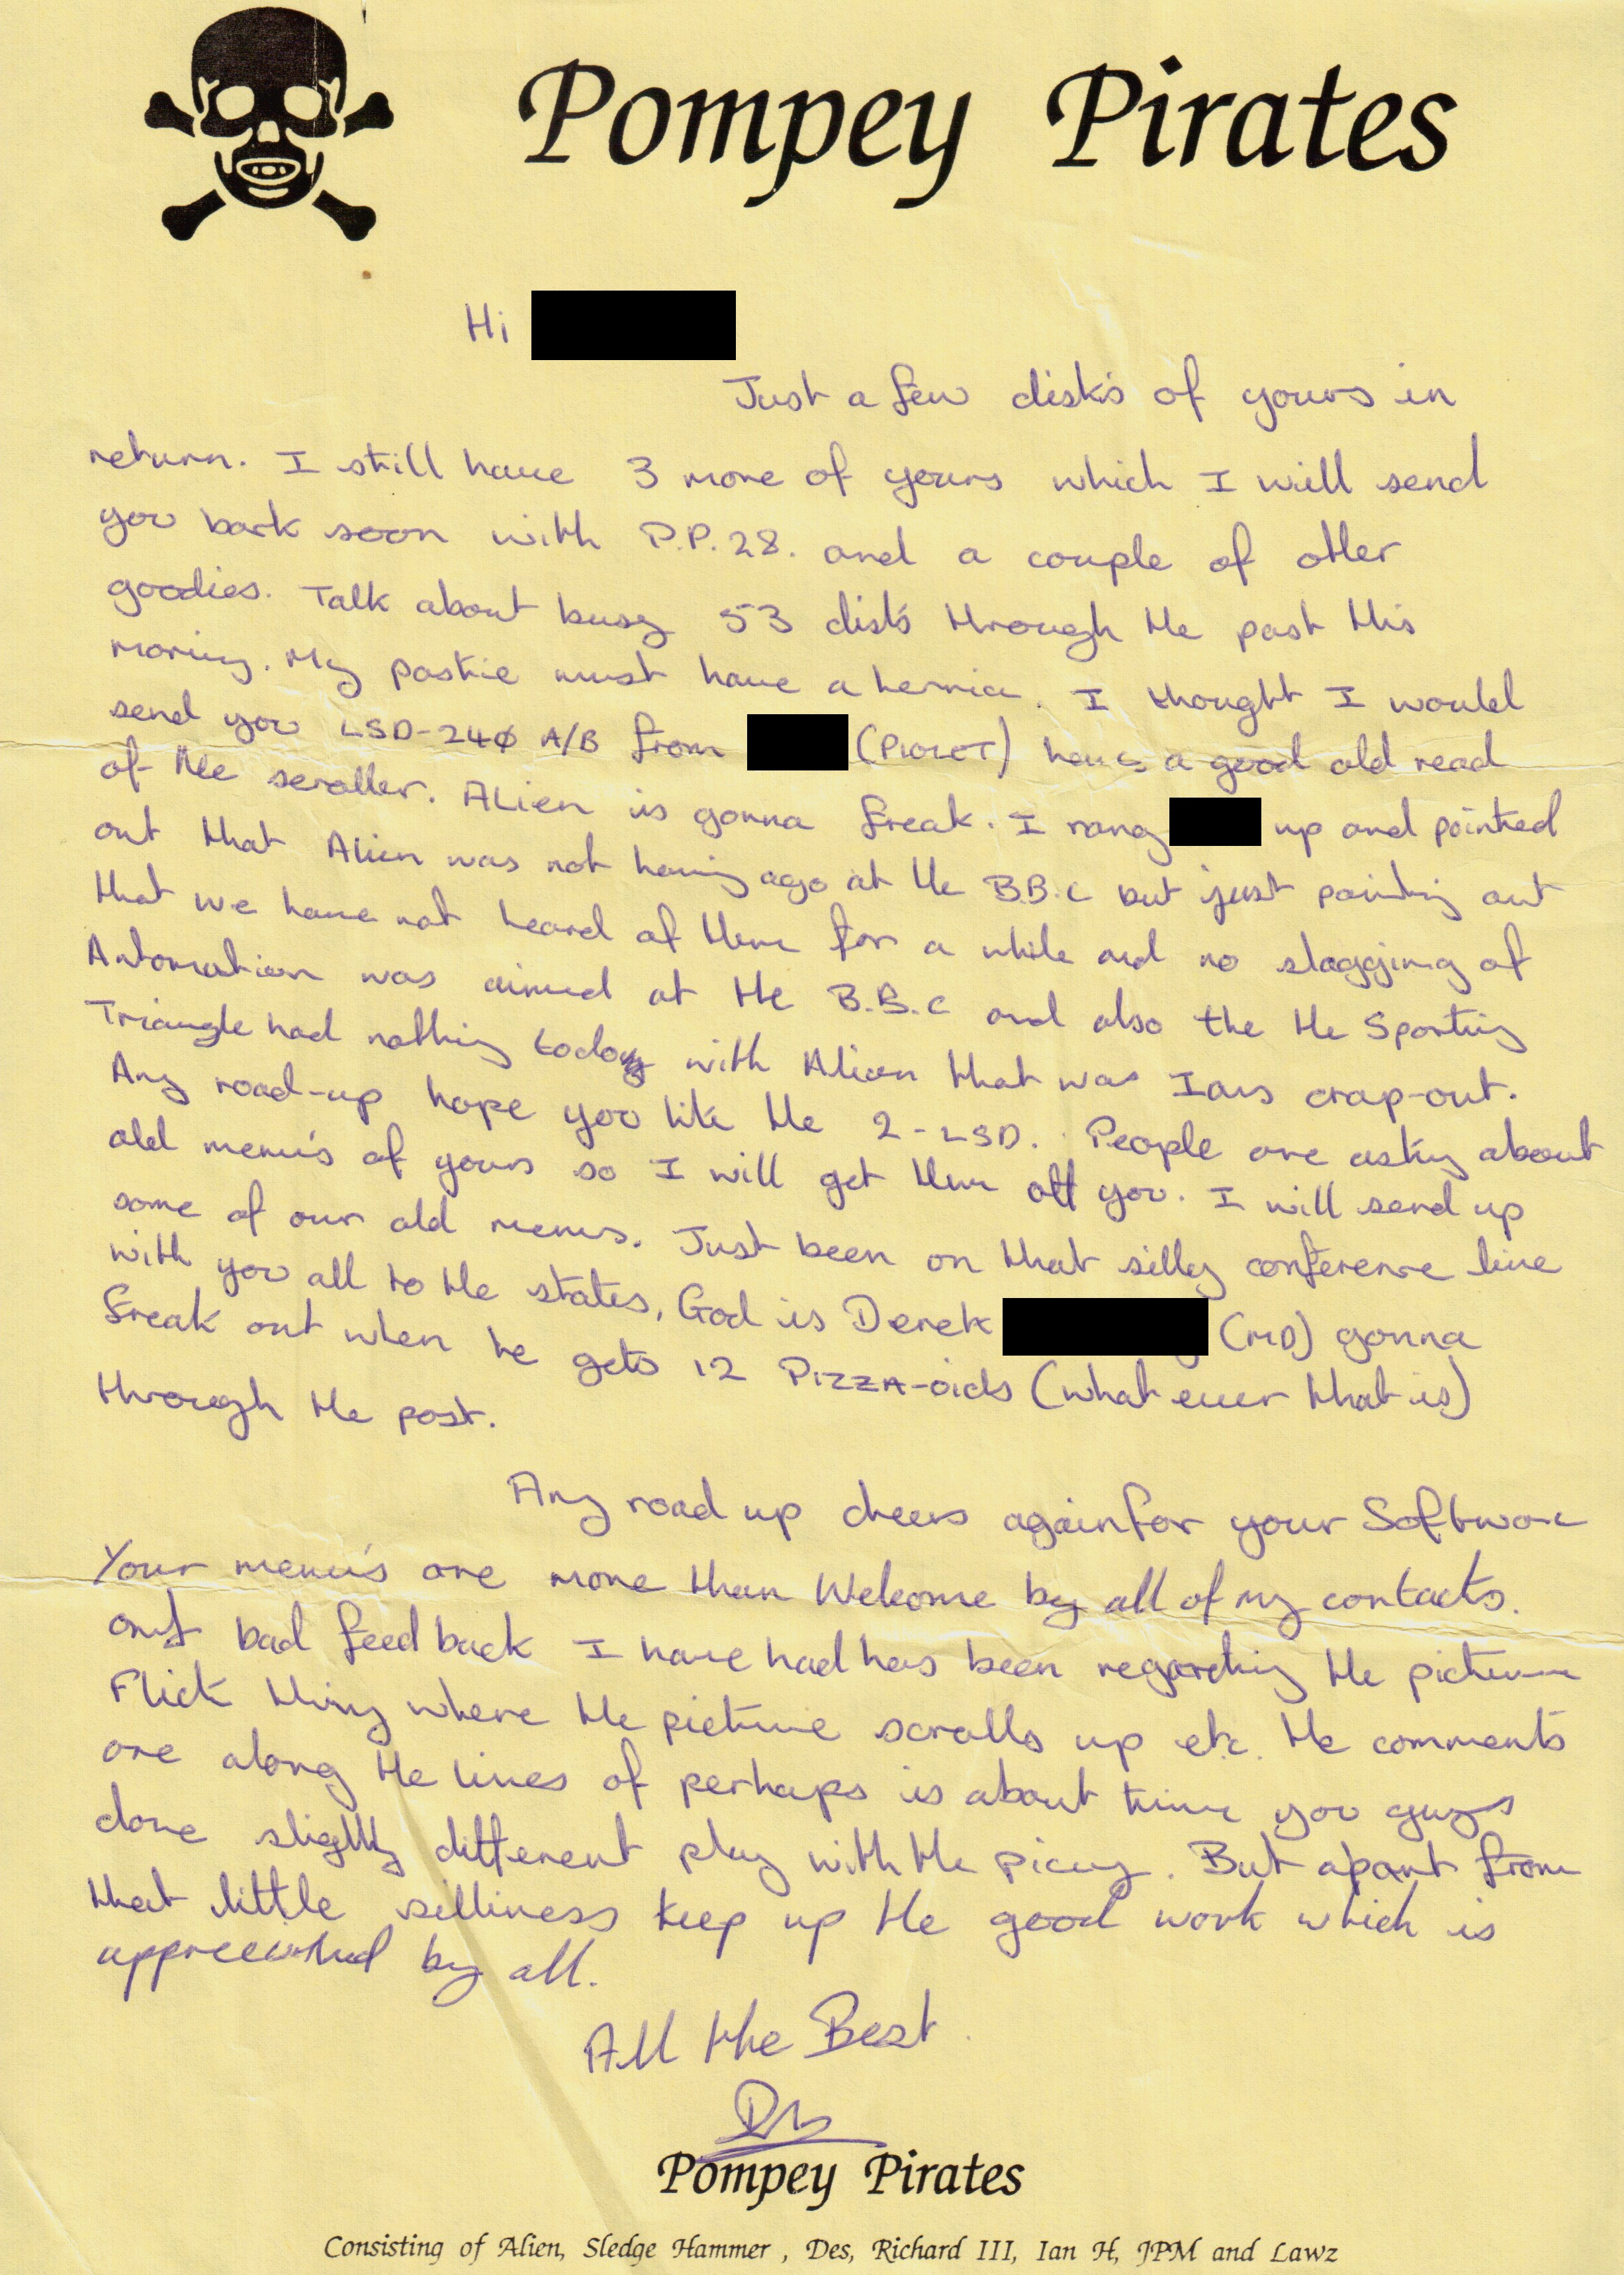 Pompey Pirates
Hi
Just a few disk's of yours in
return. I still have 3 more of yours which I will send
you back soon with P.P.28. and a couple of other
goodies. Talk about busy 53 disk's through the post this
morning. My postie must have a hernia. I thought I would
send you LSD-240 A/B from (PIOLET) have a good old read
of the scroller. Alien is gonna freak. I rang up and pointed
out that Alien was not having ago at the B.B.C but just pointing out
that we have not heard of them for a while and no slagging of
Automation was aimed at the B.B.C and also the the Sporting
Triangle had nothing today with Alien that was Ians crap-out.
Any road-up hope you like the 2-LSD. People are asking about
old menu's of yours so I will get them off you. I will send up
some of our old menus. Just been on that silly conference line
with you all to the states, God is Derek (MD) gonna
freak out when he gets 12 PIZZA-oids (what ever that is)
through the post.
Any road up cheers again for your Software
Your menu's are more than Welcome by all of my contacts.
bad feed back I have had has been regarding the picture
Flick thing where the picture scrolls up etc. the comments
are along the lines of perhaps is about time you guys
done slightly different play with the piccy. But apart from
that little silliness keep up the good work which is
appreciated by all.
All the Best
Pompey Pirates
Consisting of Alien, Sledge Hammer , Des, Richard III, Ian H, JPM and Lawz